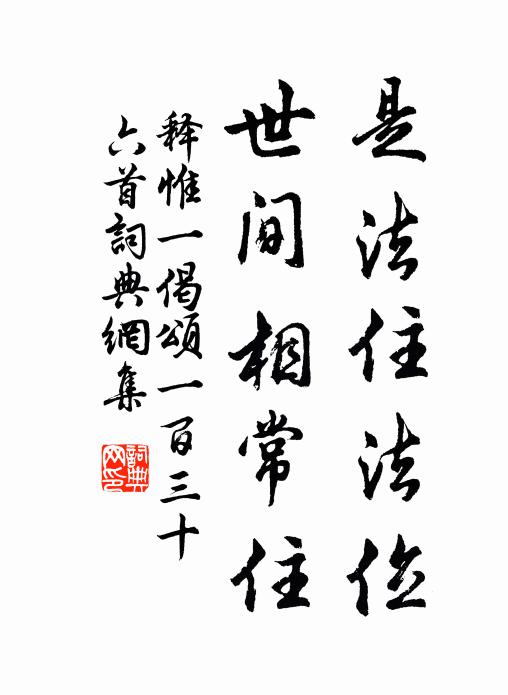 是法住法位
世间相常住
释惟一偈颂一百三十
六首詞典網集
詞典网印